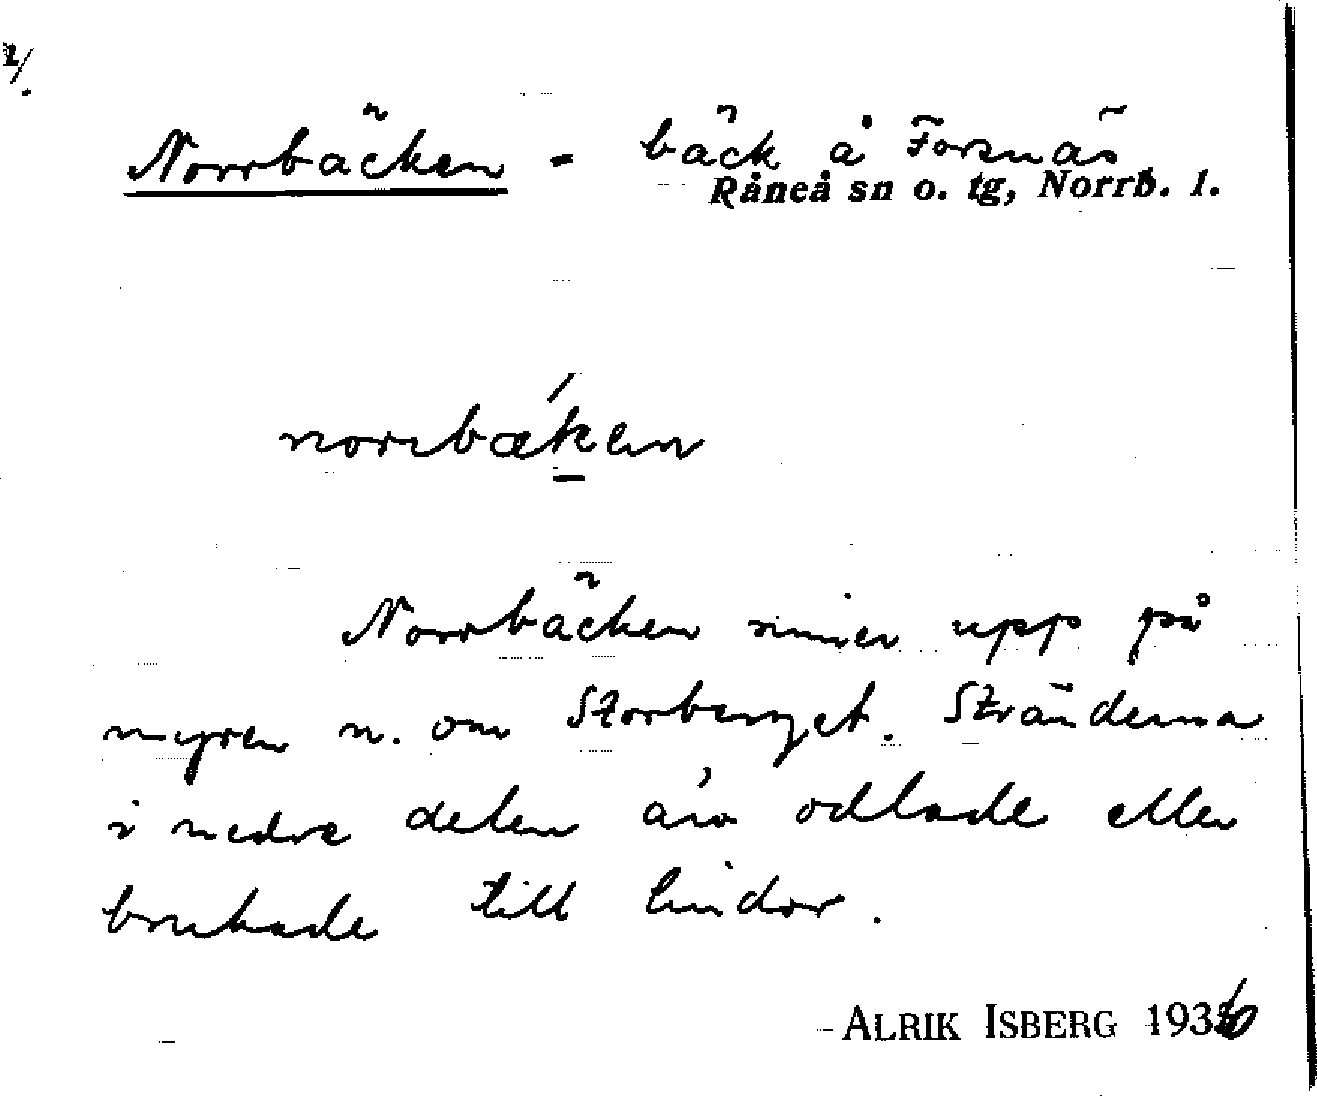 1/.
Norrbäcken - bäck å Forsnäs
Råneå sn o. tg, Norrb. l.
norrbæken
Norrbäcken rinner upp på
myren n. om Storberget. Stränderna
i nedre delen äro odlade eller
brukade till lindor.
ALRIK ISBERG 1936